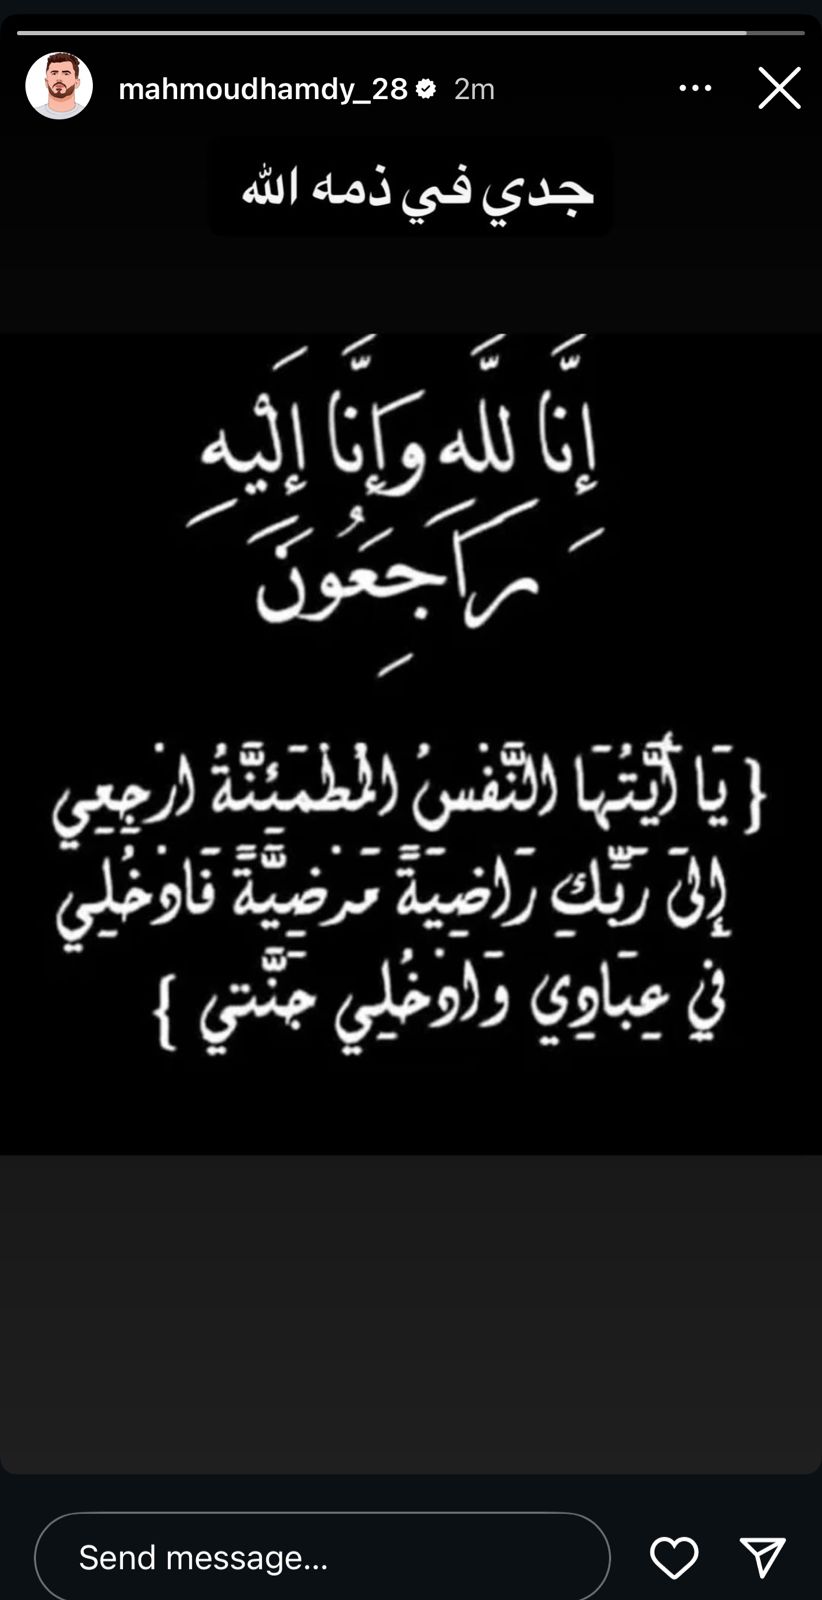 mahmoudhamdy_28 2m
جدي في ذمه الله
إِنَّا لله وَإِنَّا إِلَيْهِ
رَاجِعُونَ
{ يَا أَيَّتُهَا النَّفْسُ الْمُطْمَئِنَّةُ ارْجِعِي
إِلَىٰ رَبِّكِ رَاضِيَةً مَرْضِيَّةً فَادْخُلِي
فِي عِبَادِي وَادْخُلِي جَنَّتِي }
Send message...